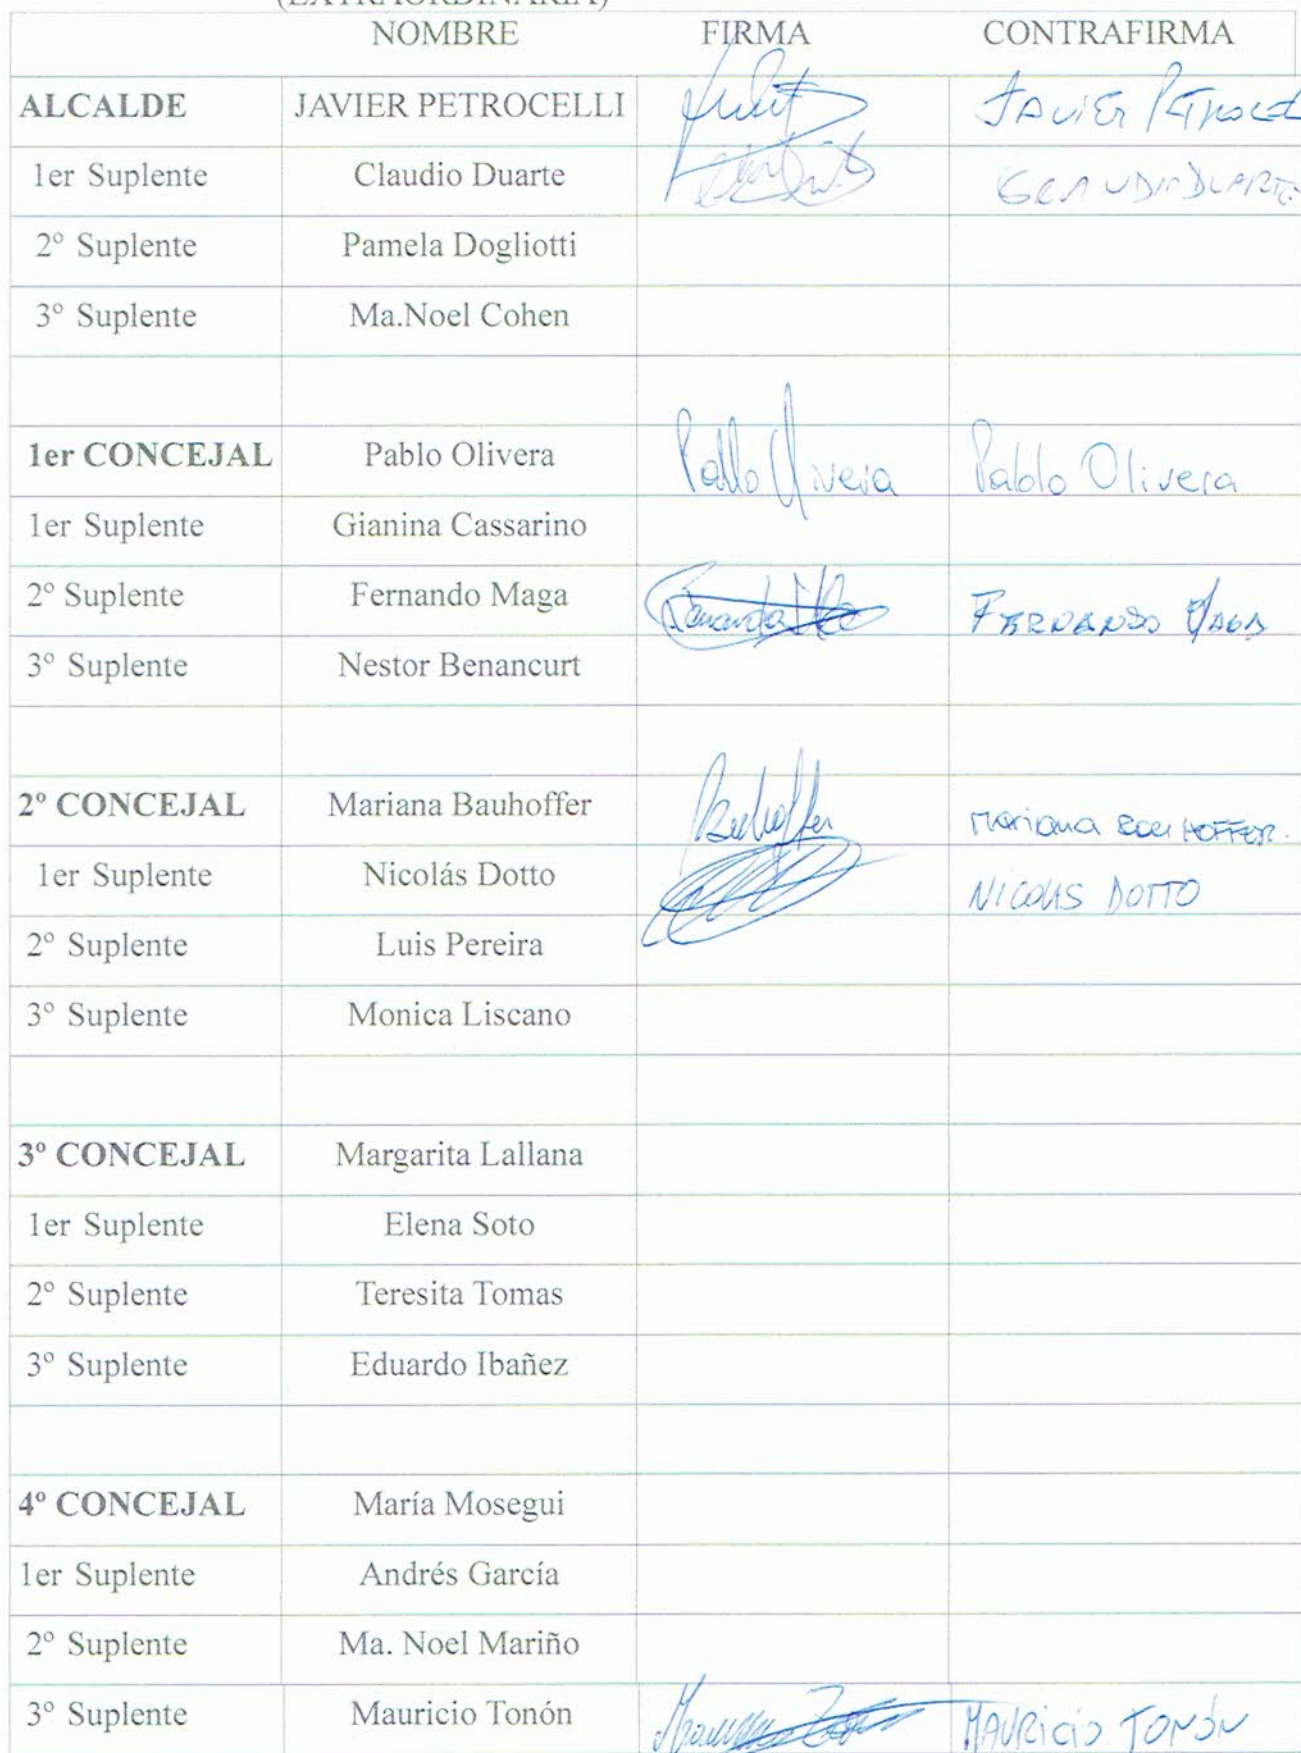 (EXTRAORDINARIA)
NOMBRE FIRMA CONTRAFIRMA
ALCALDE JAVIER PETROCELLI JAVIER
1er Suplente Claudio Duarte DUARTE
2º Suplente Pamela Dogliotti
3º Suplente Ma.Noel Cohen
1er CONCEJAL Pablo Olivera Pablo Olivera Pablo Olivera
1er Suplente Gianina Cassarino
2º Suplente Fernando Maga FERNANDO MAGA
3º Suplente Nestor Benancurt
2º CONCEJAL Mariana Bauhoffer Bauhoffer Mariana BAUHOFFER.
1er Suplente Nicolás Dotto NICOLAS DOTTO
2º Suplente Luis Pereira
3º Suplente Monica Liscano
3º CONCEJAL Margarita Lallana
1er Suplente Elena Soto
2º Suplente Teresita Tomas
3º Suplente Eduardo Ibañez
4º CONCEJAL María Mosegui
1er Suplente Andrés García
2º Suplente Ma. Noel Mariño
3º Suplente Mauricio Tonón MAURICIO TONÓN